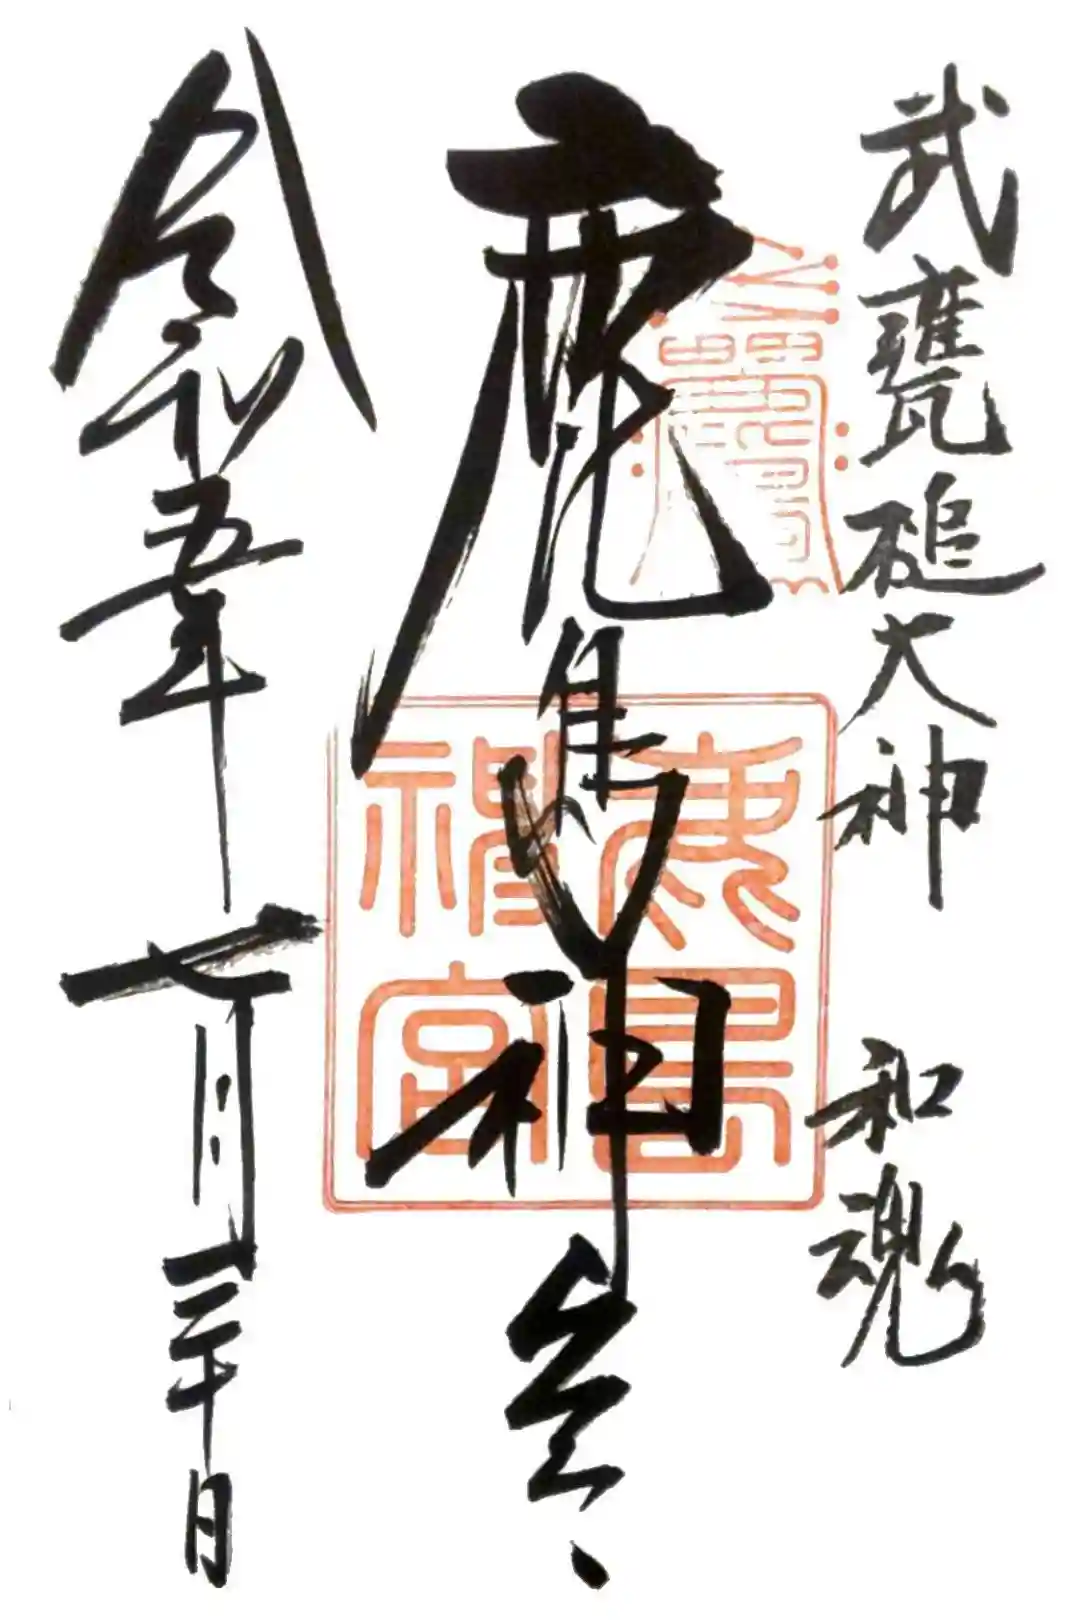 武甕槌大神 和魂
鹿島神宮
令和五年七月三十日
鹿島
神宮